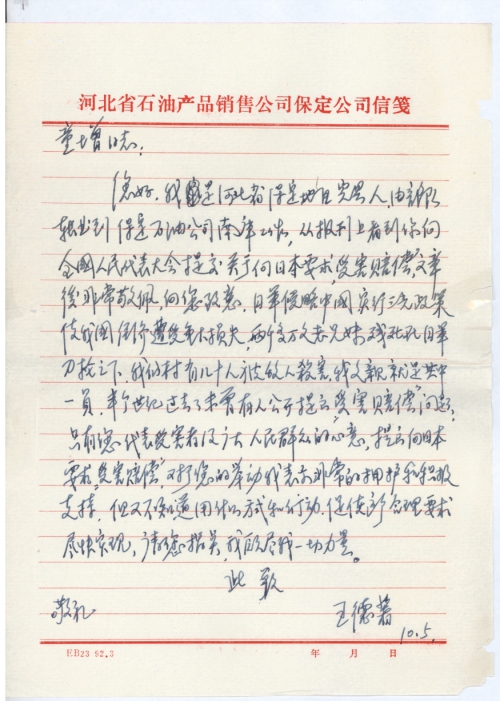 河北省石油产品销售公司保定公司信笺
童增同志:
您好,我是河北省保定地区完县人,由部队
转业到保定石油公司南库工作,从报刊上看到你向
全国人民代表大会提交关于向日本要求"受害赔偿"文章
后,非常敬佩,向您致意。日军侵略中国实行三光政策
使我国伤亡遭受重大损失,两千多万父老兄妹残死在日军
刀枪之下,我们村有几十人被敌人殺害,我父親就是其中
一員,半个世纪过去了未曾有人公开提出"受害赔偿"问题,
只有您代表受害者及广大人民群众的心意,提出向日本
要求"受害赔偿",对于您的举动我表示非常的拥护和积极
支持,但又不知道用什么方式和行动,促使这合理要求
尽快实现,请您指具,我願尽我一切力量。
此致
敬礼
王德
10.5.
EB23 92.3
年 月 日